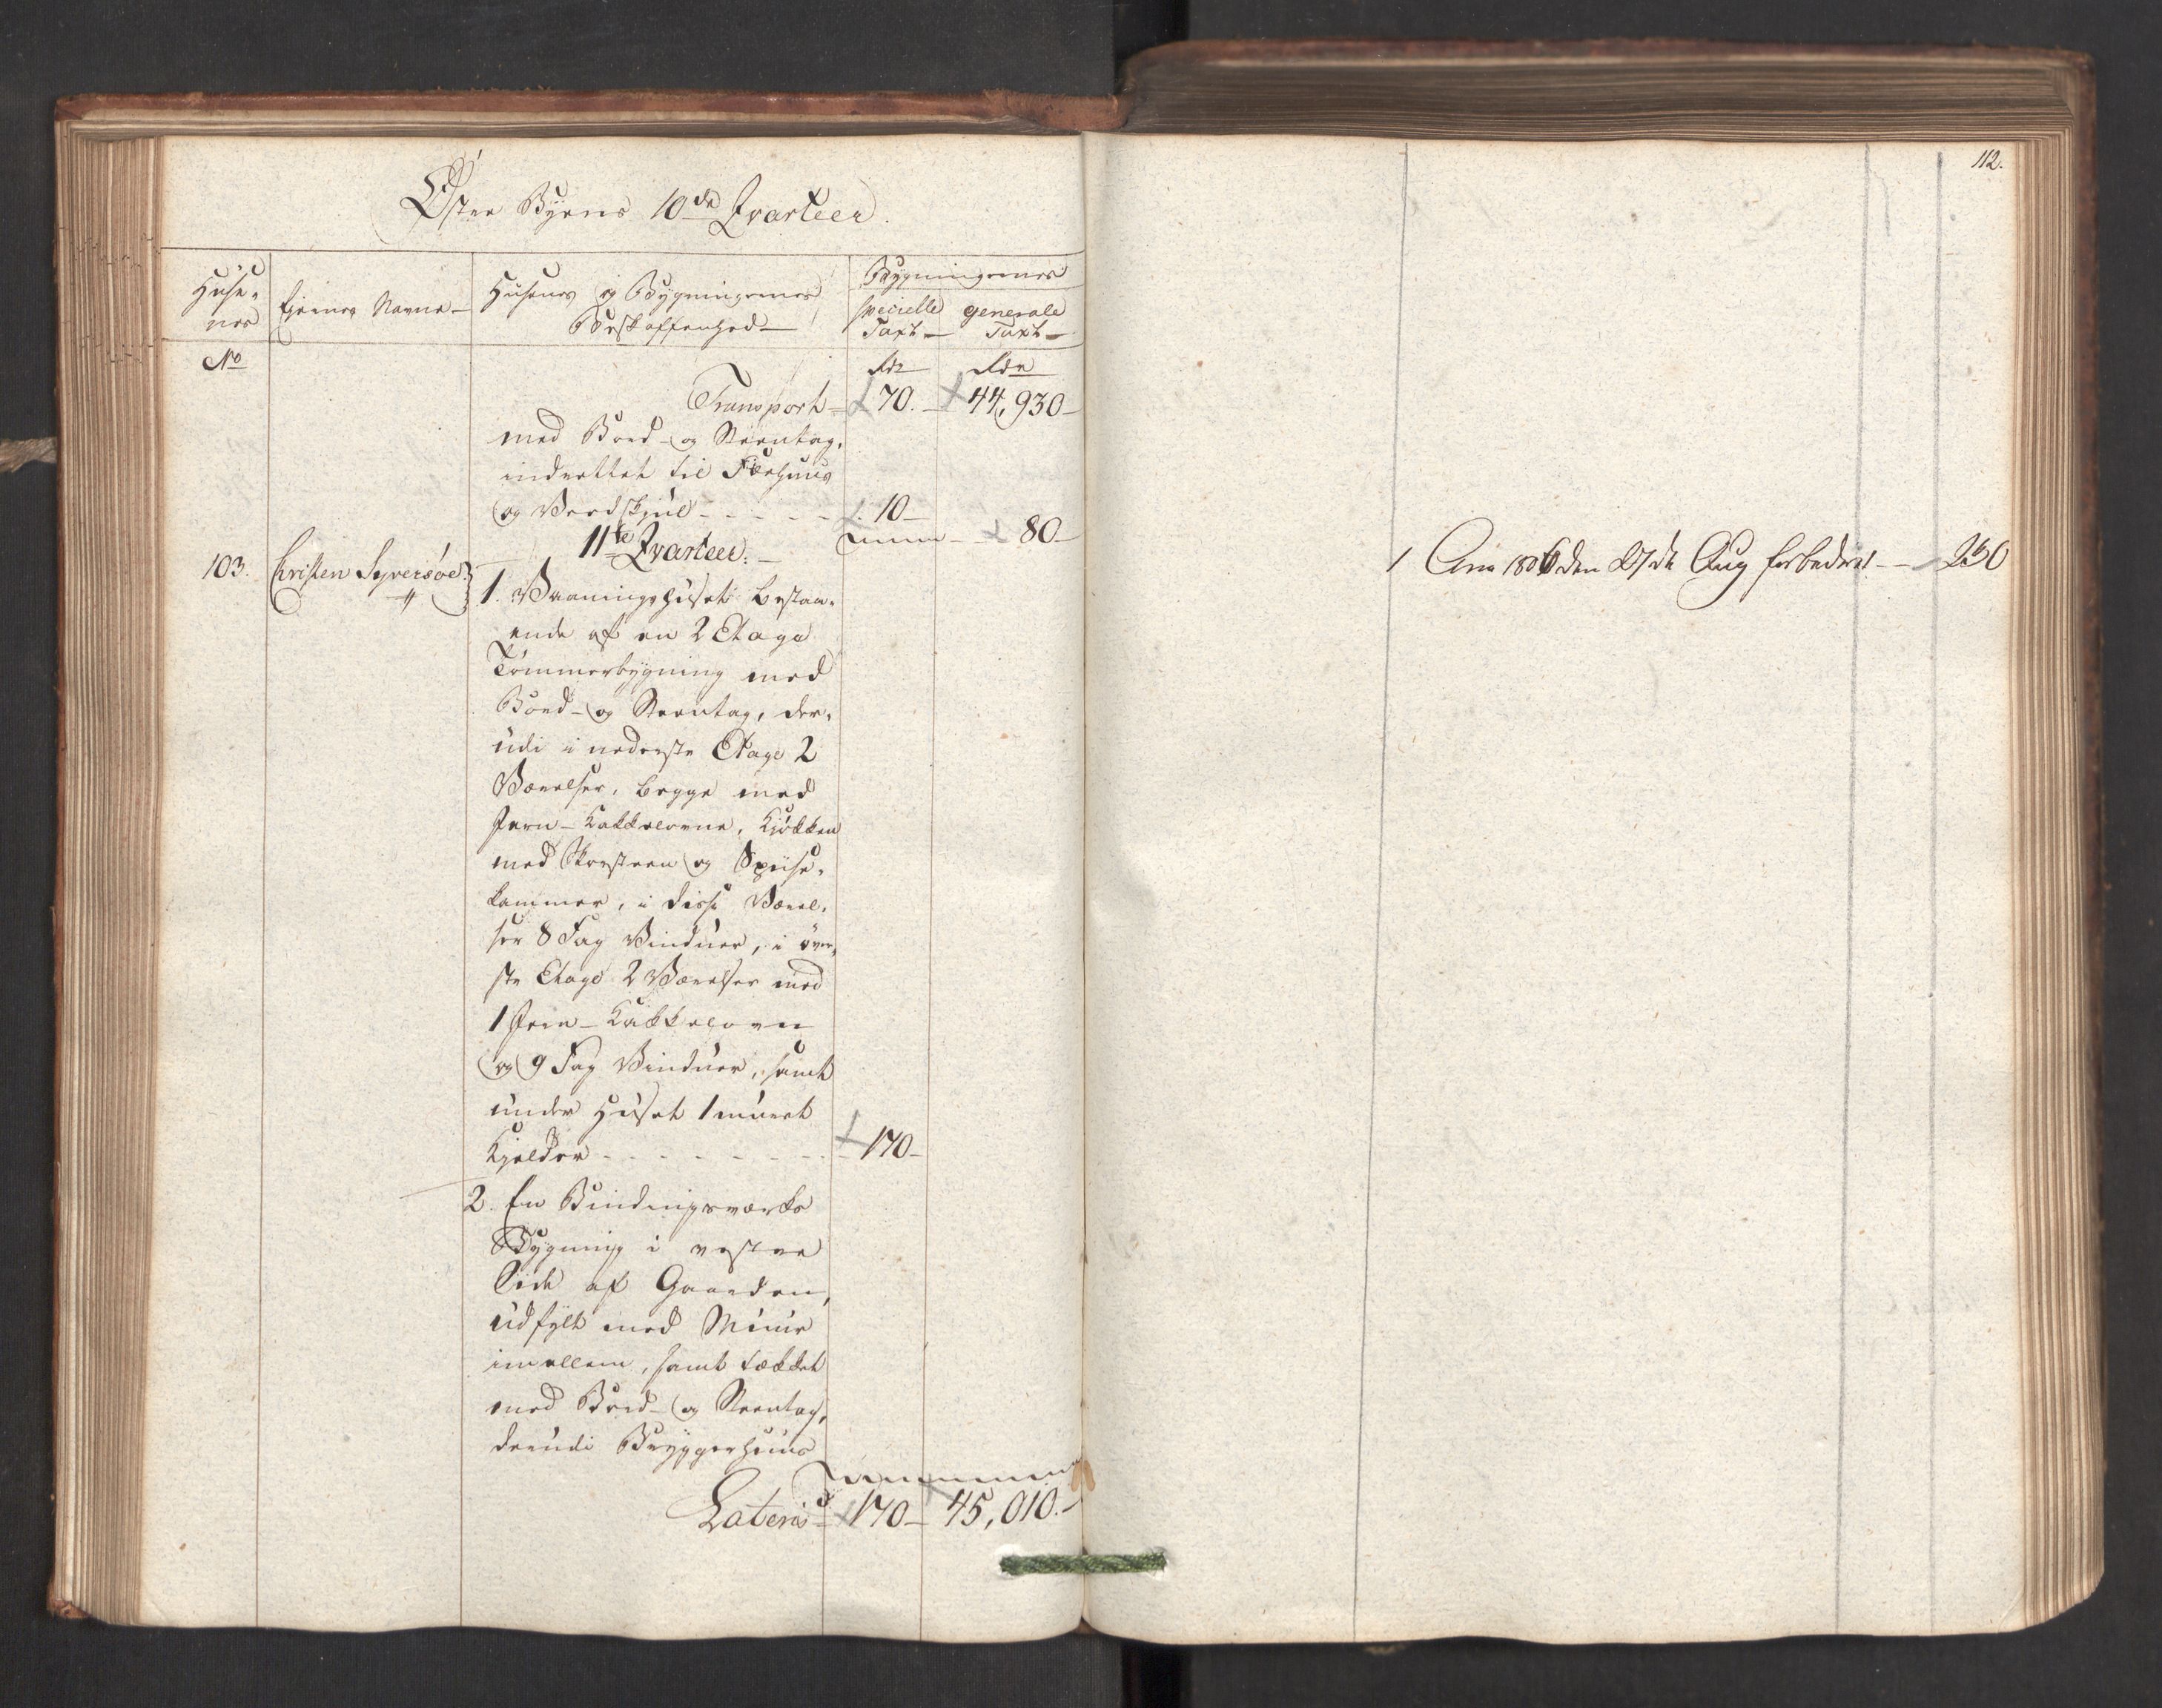 Øster Byens 10de Qvarteer.
Huse-
nes
Eiernes Navne
Husenes og Bygningernes
Beskaffenhed
Bygningernes
specielle
Taxt
generale
Taxt
No
Rdr
Rdr
Transport 70. 44,930
med Bord- og Steentag,
indrettet til Fæehuus
og Vedskjul - - - - - 10
80
11te Qvarteer.
103. Christen Syversøe
1. Vaaningshuset bestaa-
ende af en 2 Etage
Tömmerbygning med
Bord- og Steentag, der-
udi i nederste Etage 2
Værelser, begge med
Jern-Kakkelovne, Kjökken
med Skorsteen og Spiise-
kammer, i disse Værel-
ser 8 Fag Vinduer, i över-
ste Etage 2 Værelser med
1 Jern-Kakkelovn
og 9 Fag Vinduer, samt
under Huset 1 muret
Kjelder - - - - - - - 170
2. En Bindingsværks
Bygning i vestre
Side af Gaarden,
udfylt med Muur
imellem, samt tækket
med Bord- og Steentag,
derudi Bryggerhuus
Lateris 170 45,010.
112.
1 Ano 1806 den 27de Aug forbedret - - 250